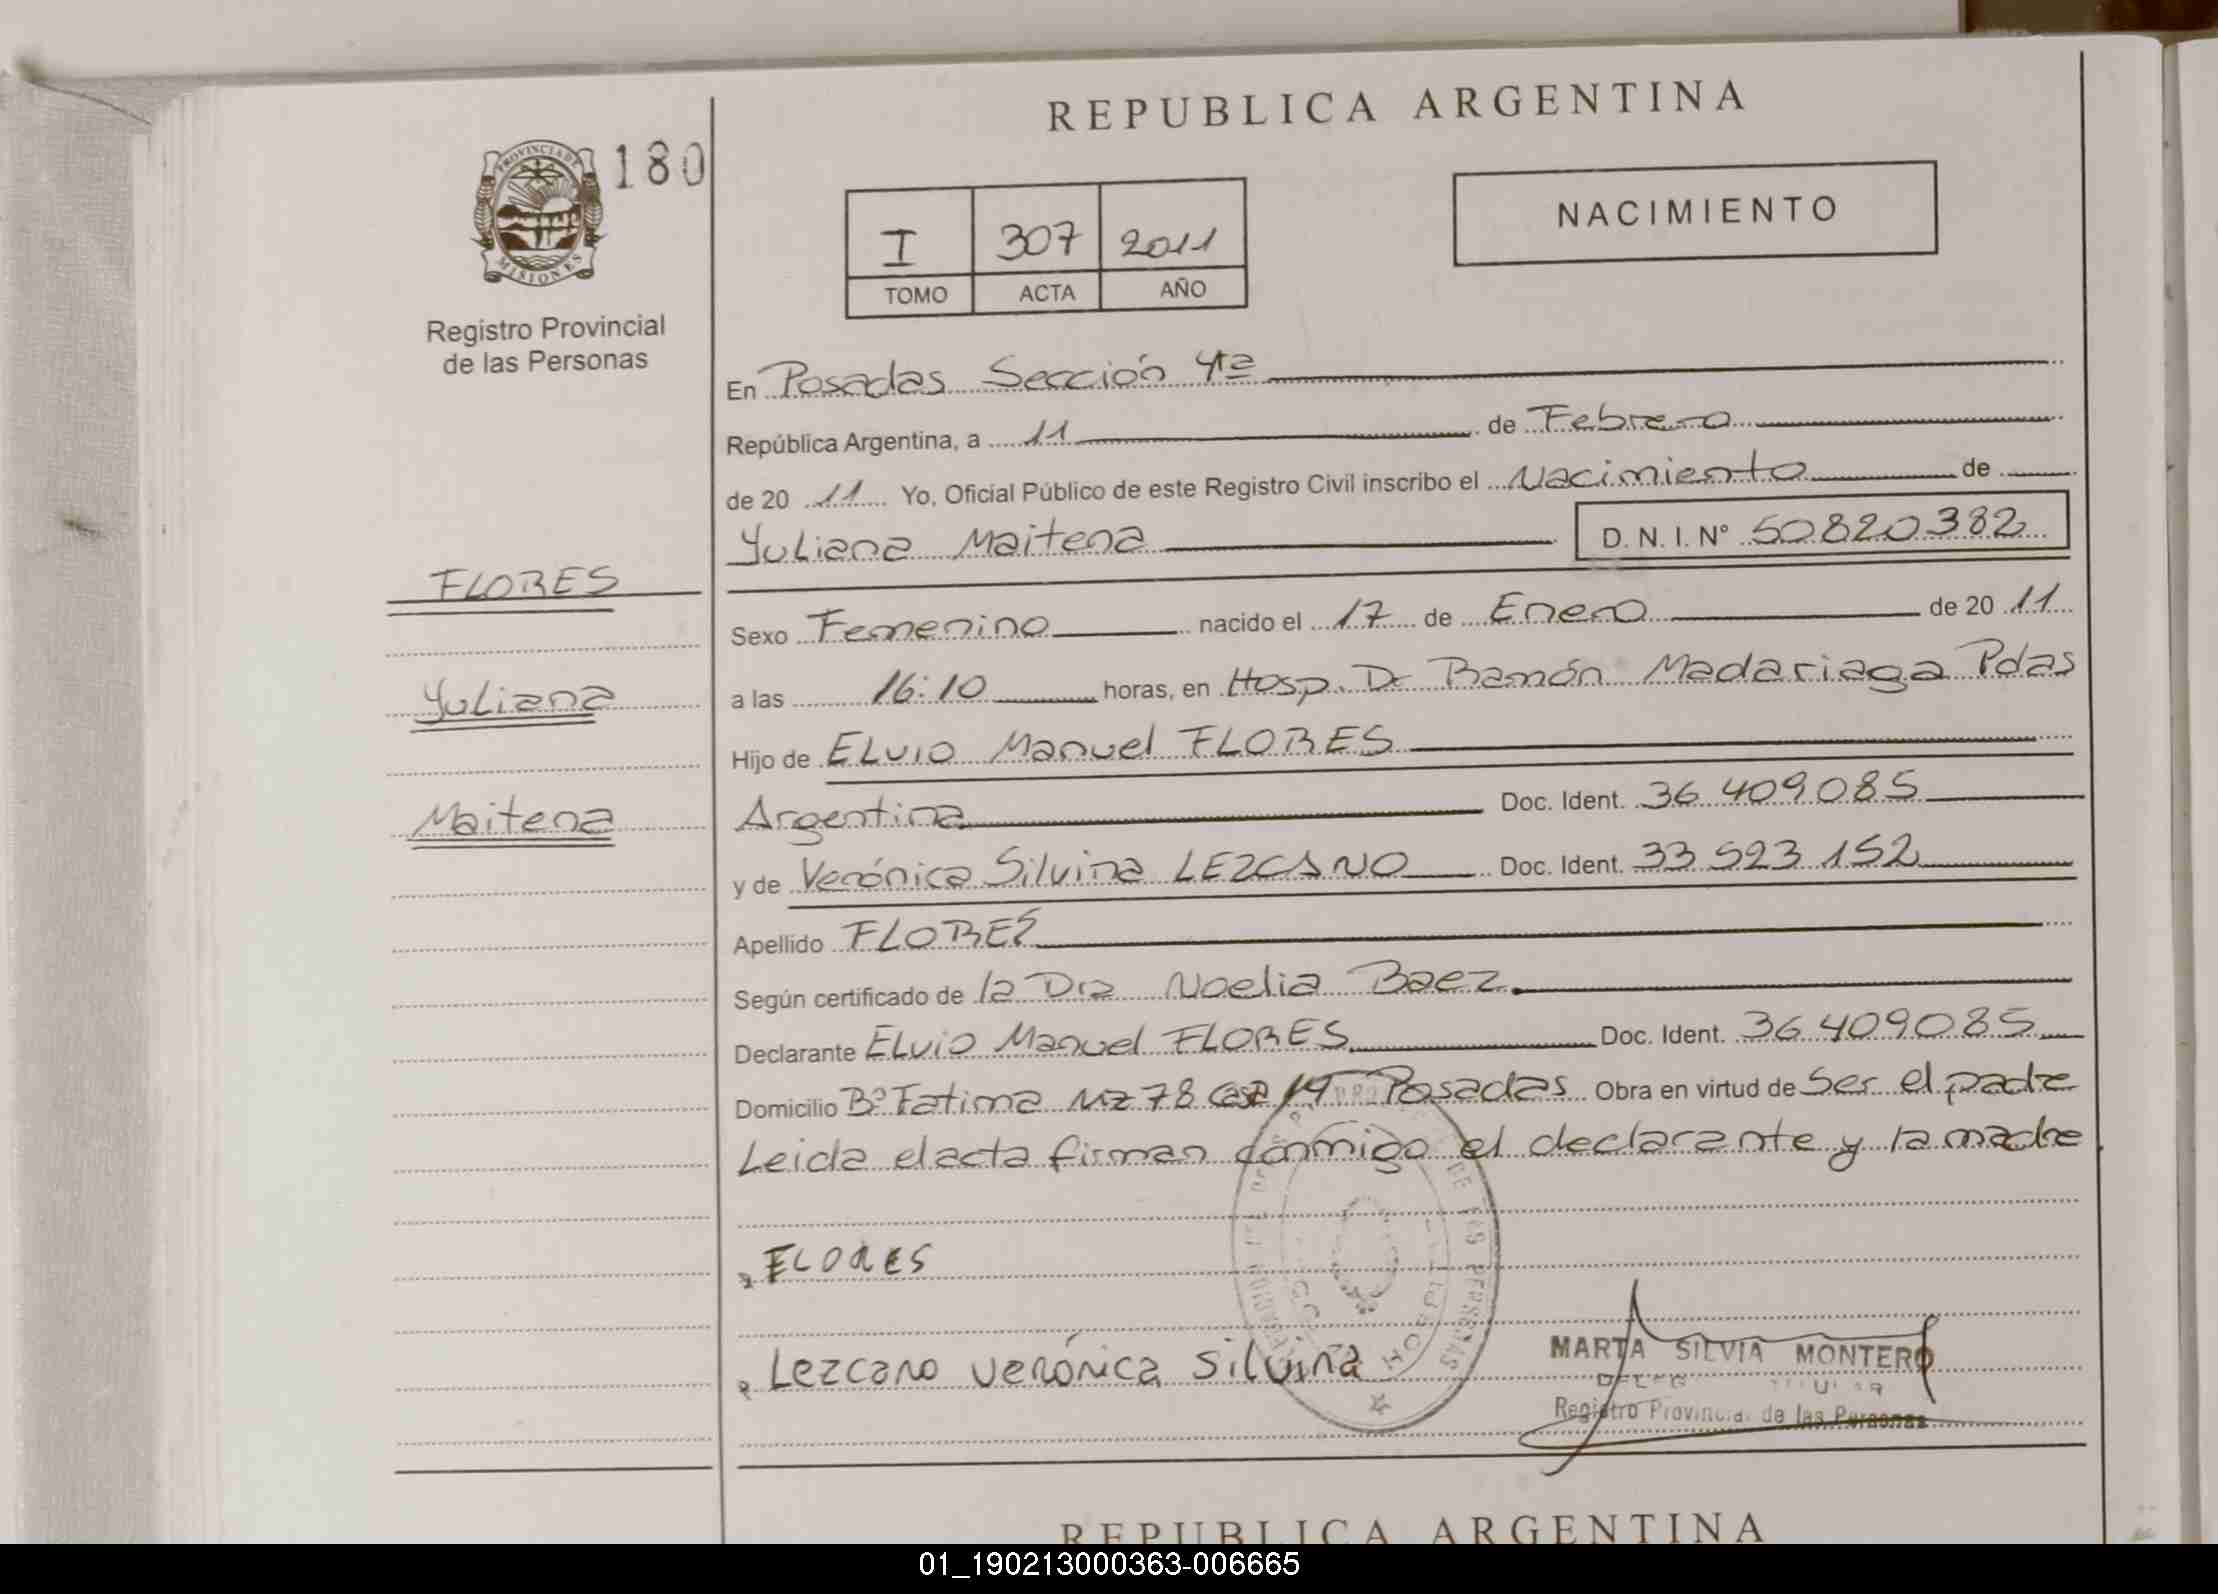 REPUBLICA ARGENTINA
PROVINCIA DE
MISIONES
180
Registro Provincial
de las Personas
I 307 2011
TOMO ACTA AÑO
NACIMIENTO
En Posadas Sección 4ta
República Argentina, a 11 de Febrero
de 20 11 Yo, Oficial Público de este Registro Civil inscribo el Nacimiento de
Yuliana Maitena D. N. I. N° 50820382
FLORES
Yuliana
Maitena
Sexo Femenino nacido el 17 de Enero de 20 11
a las 16:10 horas, en Hosp. Dr Ramón Madariaga Pdas
Hijo de ELVIO Manuel FLORES
Argentina Doc. Ident. 36 409085
y de Verónica Silvina LEZCANO Doc. Ident. 33 523 152
Apellido FLORES
Según certificado de la Dra Noelia Baez
Declarante ELVIO Manuel FLORES Doc. Ident. 36 409085
Domicilio B° Fatima Mz 78 Casa Posadas Obra en virtud de Ser el padre
Leida el acta firman conmigo el declarante y la madre
FLORES
Lezcano Verónica Silvina
MARTA SILVIA MONTERO
Registro Provincial de las Personas
REPUBLICA ARGENTINA
01_190213000363-006665